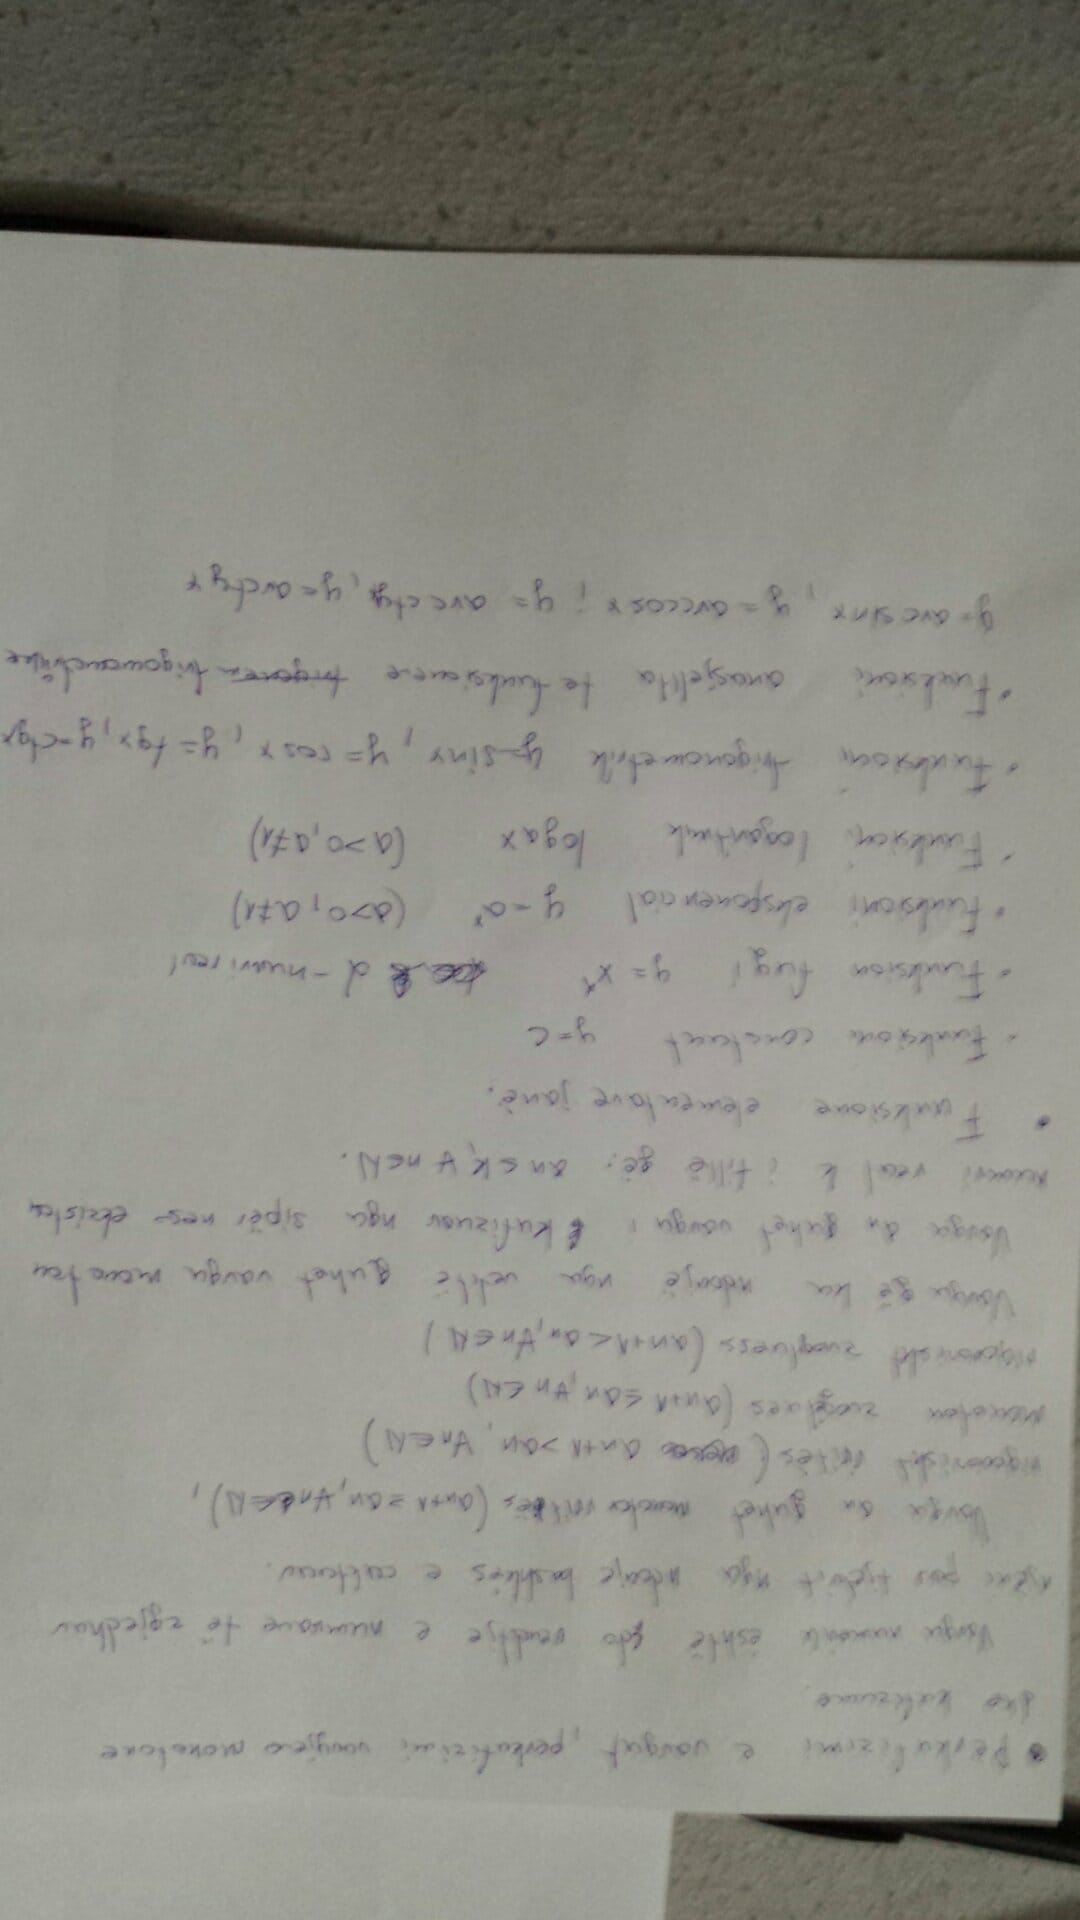 • Përkufizimi e vargut, perkufizimi vargjeve monotone
dhe kufizume.
Vargu numërik është çdo renditje e numrave të zgjedhur
njëri pas tjetrit nga ndonje bashkës e caktuar.
Vargu an quhet monoton rritës (an+1 ≥ an, ∀n∈N),
rigorozisht rritës ( an+1 > an, ∀n∈N)
monoton zvogëlues (an+1 ≤ an, ∀n∈N)
rigorozisht zvogëlues (an+1 < an, ∀n∈N)
Vargu që ka ndonjë nga vetitë quhet vargu monoton
Vargu an quhet vargu i kufizuar nga sipër nese ekziston
numri real k i tillë që: an ≤ k, ∀ n∈N.
• Funksione elementare janë.
- Funksioni constant y=c
- Funksion fuqi y = x^α α -numri real
• Funksioni eksponencial y = a^x (a>0, a≠1)
- Funksioni logaritmik logax (a>0, a≠1)
• Funksioni trigonometrik y=sinx, y=cosx, y=tgx, y=ctgx
• Funksioni anasjellta te funksioneve trigonom trigonometrike
y=arcsinx, y=arccosx; y= arcctgx, y=arctgx